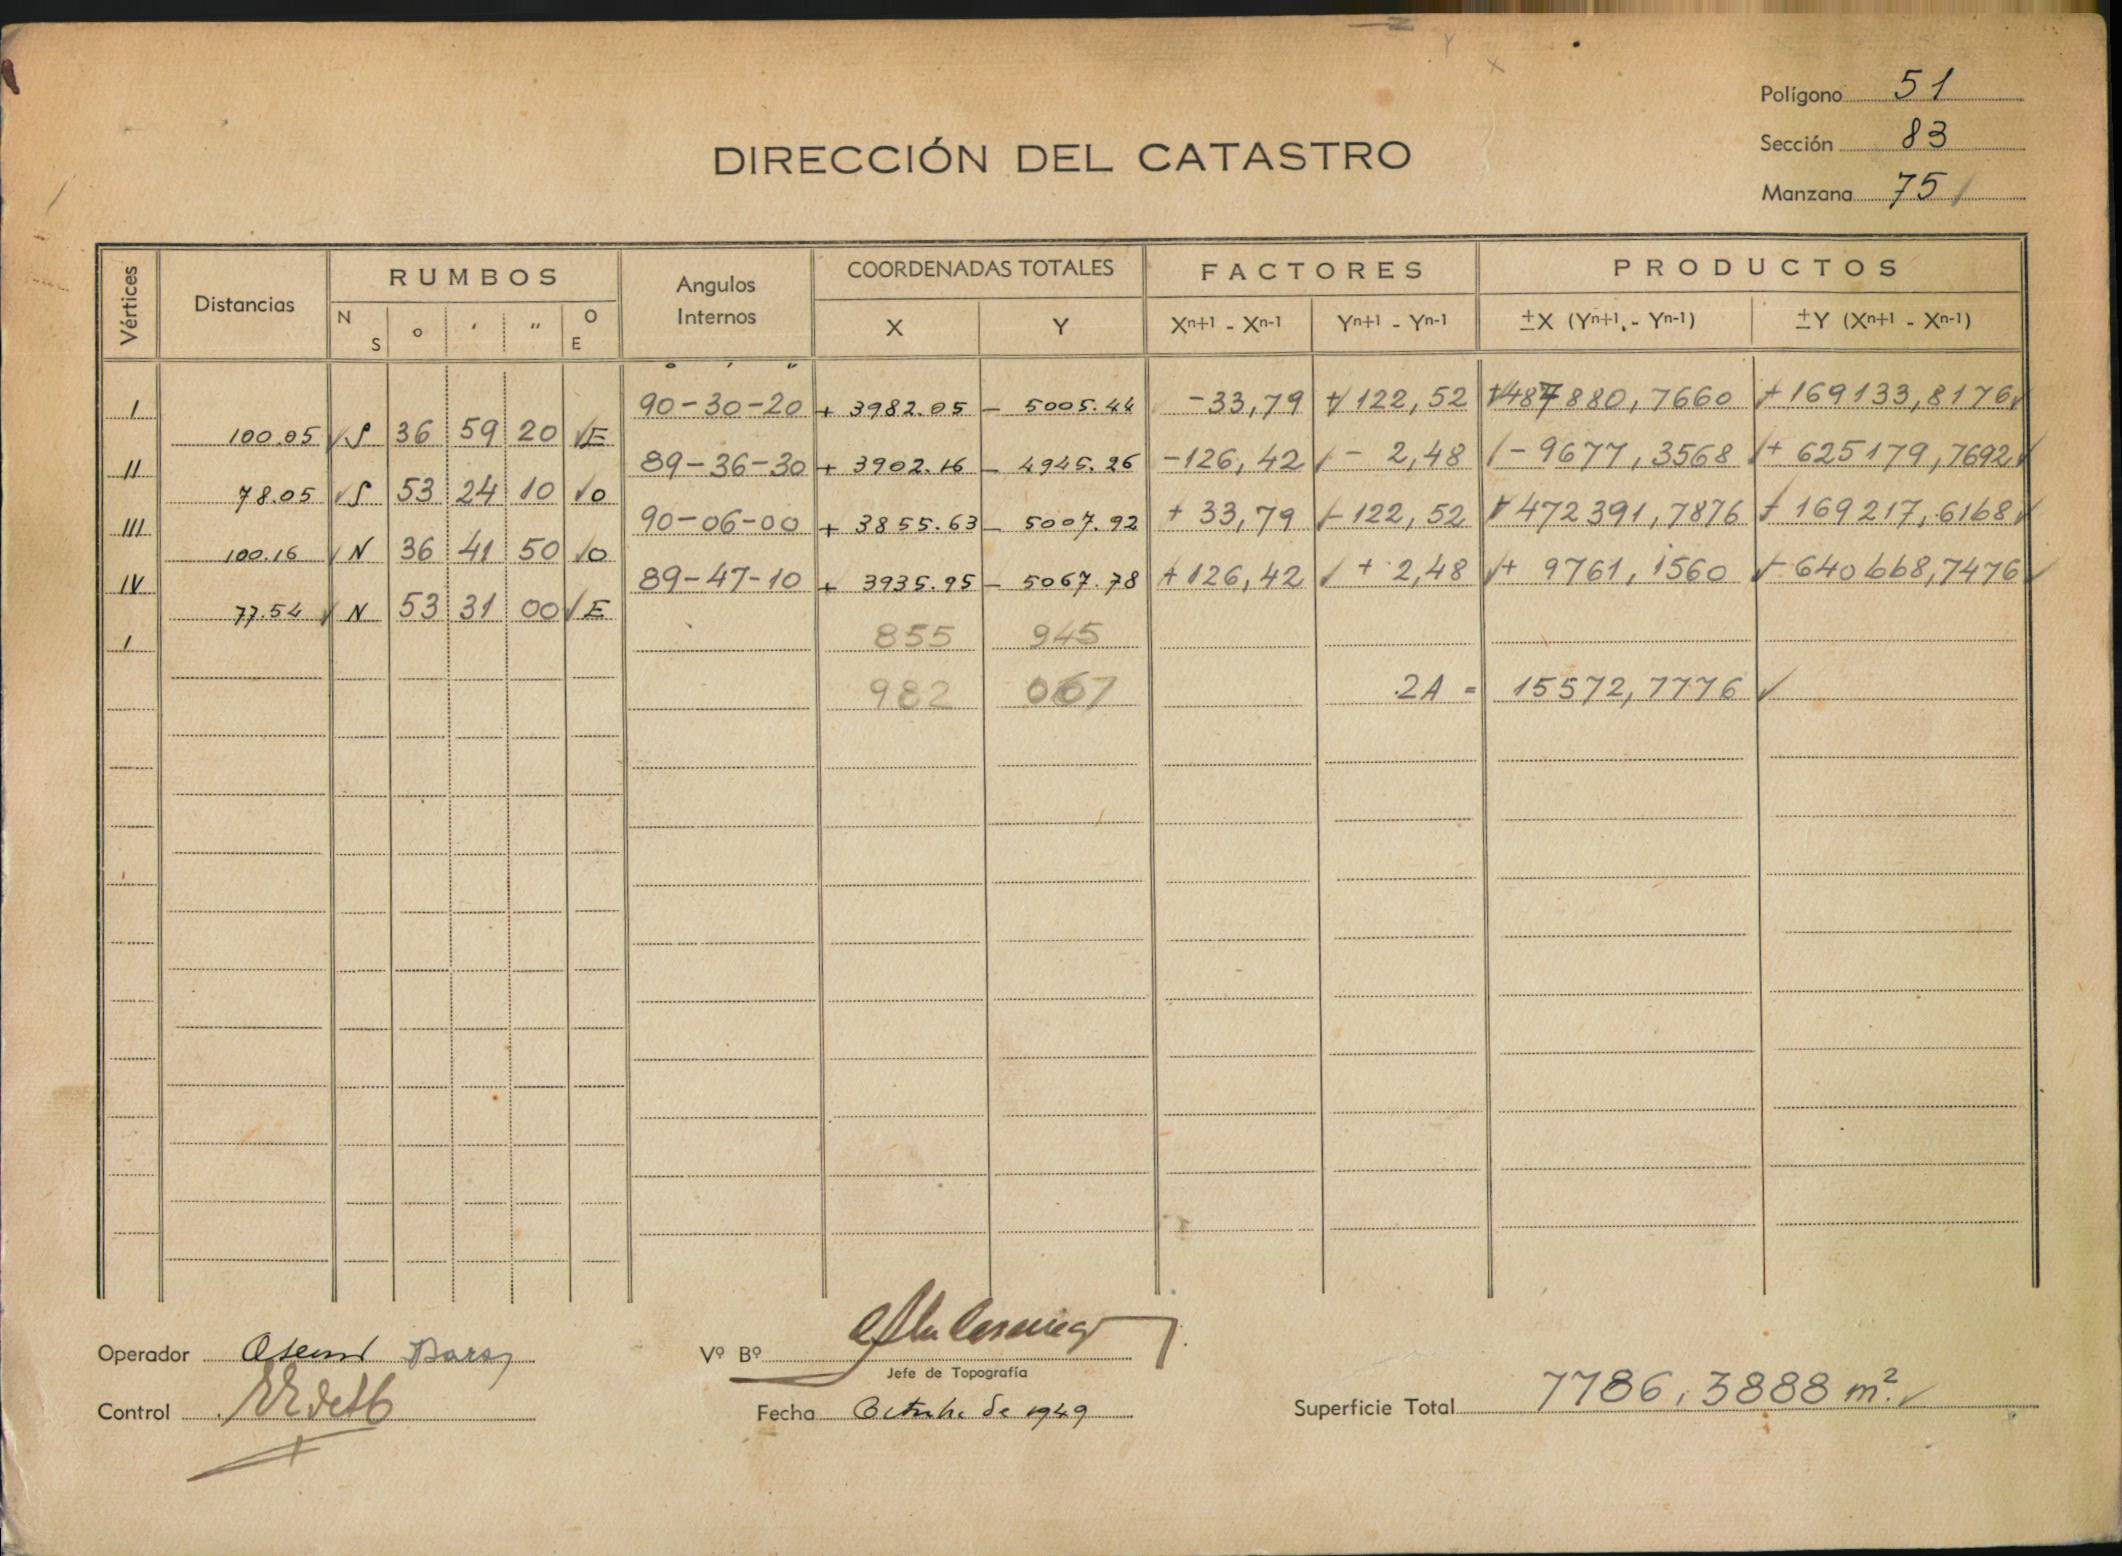 Polígono 51
Sección 83
DIRECCIÓN DEL CATASTRO
Manzana 75
Vértices Distancias RUMBOS Angulos Internos COORDENADAS TOTALES FACTORES PRODUCTOS
N S o ' " O E X Y Xn+1 - Xn-1 Yn+1 - Yn-1 ±X (Yn+1 - Yn-1) ±Y (Xn+1 - Xn-1)
o ' "
I 90-30-20 + 3982.05 - 5005.44 -33,79 +122,52 +487880,7660 +169133,8176
100.05 S 36 59 20 E
II 89-36-30 + 3902.16 - 4945.26 -126,42 - 2,48 - 9677,3568 + 625179,7692
78.05 S 53 24 10 O
III 90-06-00 + 3855.63 - 5007.92 + 33,79 -122,52 - 472391,7876 - 169217,6168
100.16 N 36 41 50 O
IV 89-47-10 + 3935.95 - 5067.78 +126,42 + 2,48 + 9761,1560 - 640668,7476
77.54 N 53 31 00 E
I 855 945
982 067 2A = 15572,7776
Operador
Vº Bº
Jefe de Topografía
Control
Fecha Octubre de 1949
Superficie Total 7786,3888 m².